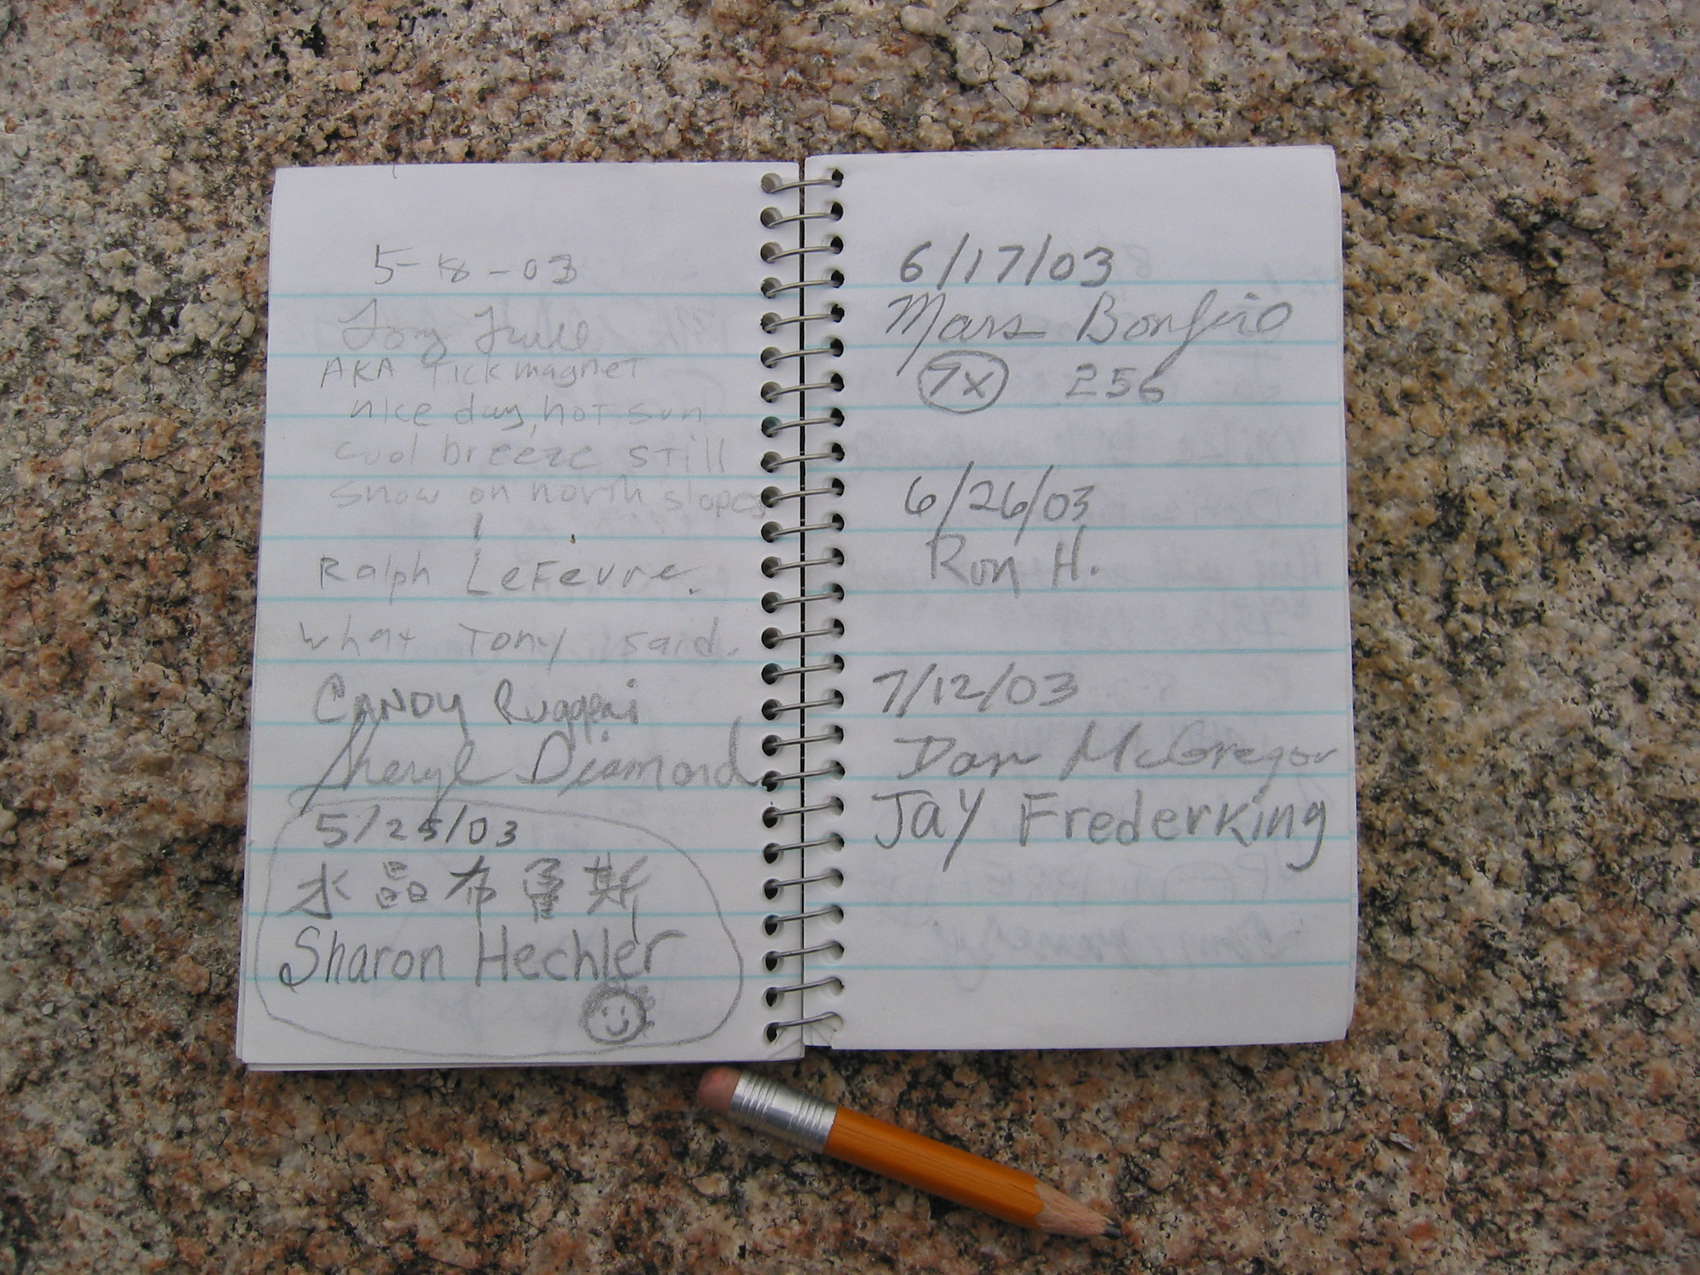 5-18-03
Tony
AKA Tick magnet
nice day, hot sun
cool breeze still
snow on north slopes
Ralph LeFevre.
What Tony said.
CANDY Ruggeri
Sheryl Diamond
5/25/03
水晶布魯斯
Sharon Hechler
6/17/03
Mars Bonfire
7x 256
6/26/03
Ron H.
7/12/03
Dan McGregor
JaY Frederking